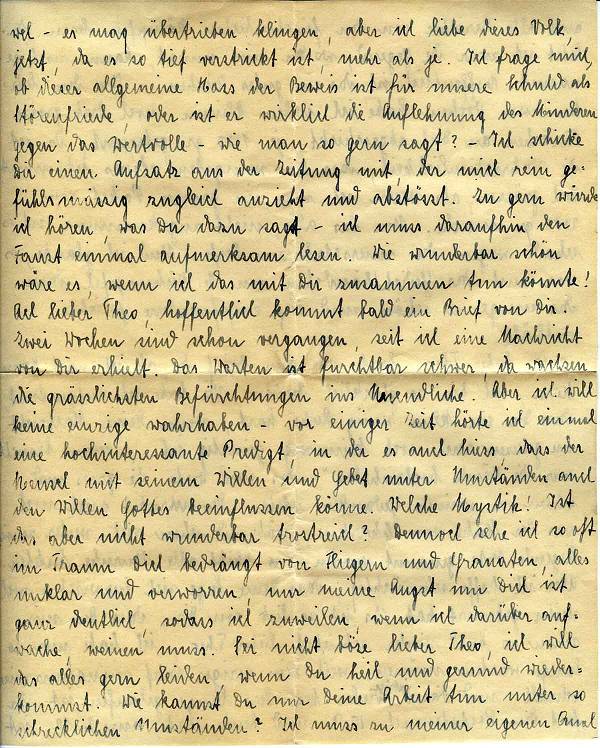 wel - es mag übertrieben klingen, aber ich liebe dieses Volk,
jetzt, da es so tief verstrickt ist, mehr als je. Ich frage mich,
ob dieser allgemeine Hass der Beweis ist für unsere Schuld als
Störenfriede oder ist er wirklich die Auflehnung des Minderen
gegen das Wertvolle - wie man so gern sagt? - Ich schicke
Dir einen Aufsatz aus der Zeitung mit, der mich rein ge-
fühlsmässig zugleich anzieht und abstösst. Zu gern würde
ich hören, was Du dazu sagst - ich muss daraufhin den
Faust einmal aufmerksam lesen. Wie wunderbar schön
wäre es, wenn ich das mit Dir zusammen tun könnte!
Ach lieber Theo, hoffentlich kommt bald ein Brief von Dir.
Zwei Wochen sind schon vergangen, seit ich eine Nachricht
von Dir erhielt. Das Warten ist furchtbar schwer, da wachsen
die grässlichsten Befürchtungen ins Unendliche. Aber ich will
keine einzige wahrhaben - vor einiger Zeit hörte ich einmal
eine hochinteressante Predigt, in der es auch hiess dass der
Mensch mit seinem Willen und Gebet unter Umständen auch
den Willen Gottes beeinflussen könne. Welche Mystik! Ist
das aber nicht wunderbar trostreich? Dennoch sehe ich so oft
im Traum Dich bedrängt von Fliegern und Granaten, alles
unklar und verworren, nur meine Angst um Dich ist
ganz deutlich, sodass ich zuweilen, wenn ich darüber auf-
wache, weinen muss. Sei nicht böse lieber Theo, ich will
das alles gern leiden, wenn Du heil und gesund wieder-
kommst. Wie kannst Du nur Deine Arbeit tun unter so
schrecklichen Umständen? Ich muss zu meiner eigenen